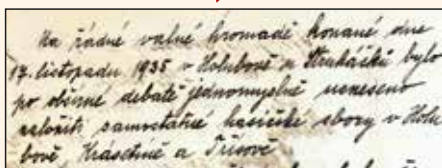 Na řádné valné hromadě konané dne
17. listopadu 1935 v Holubově u Struháčků bylo
po obšírné debatě jednomyslně usneseno
založiti samostatné hasičské sbory v Holu
bově Krasetíně a Třísově